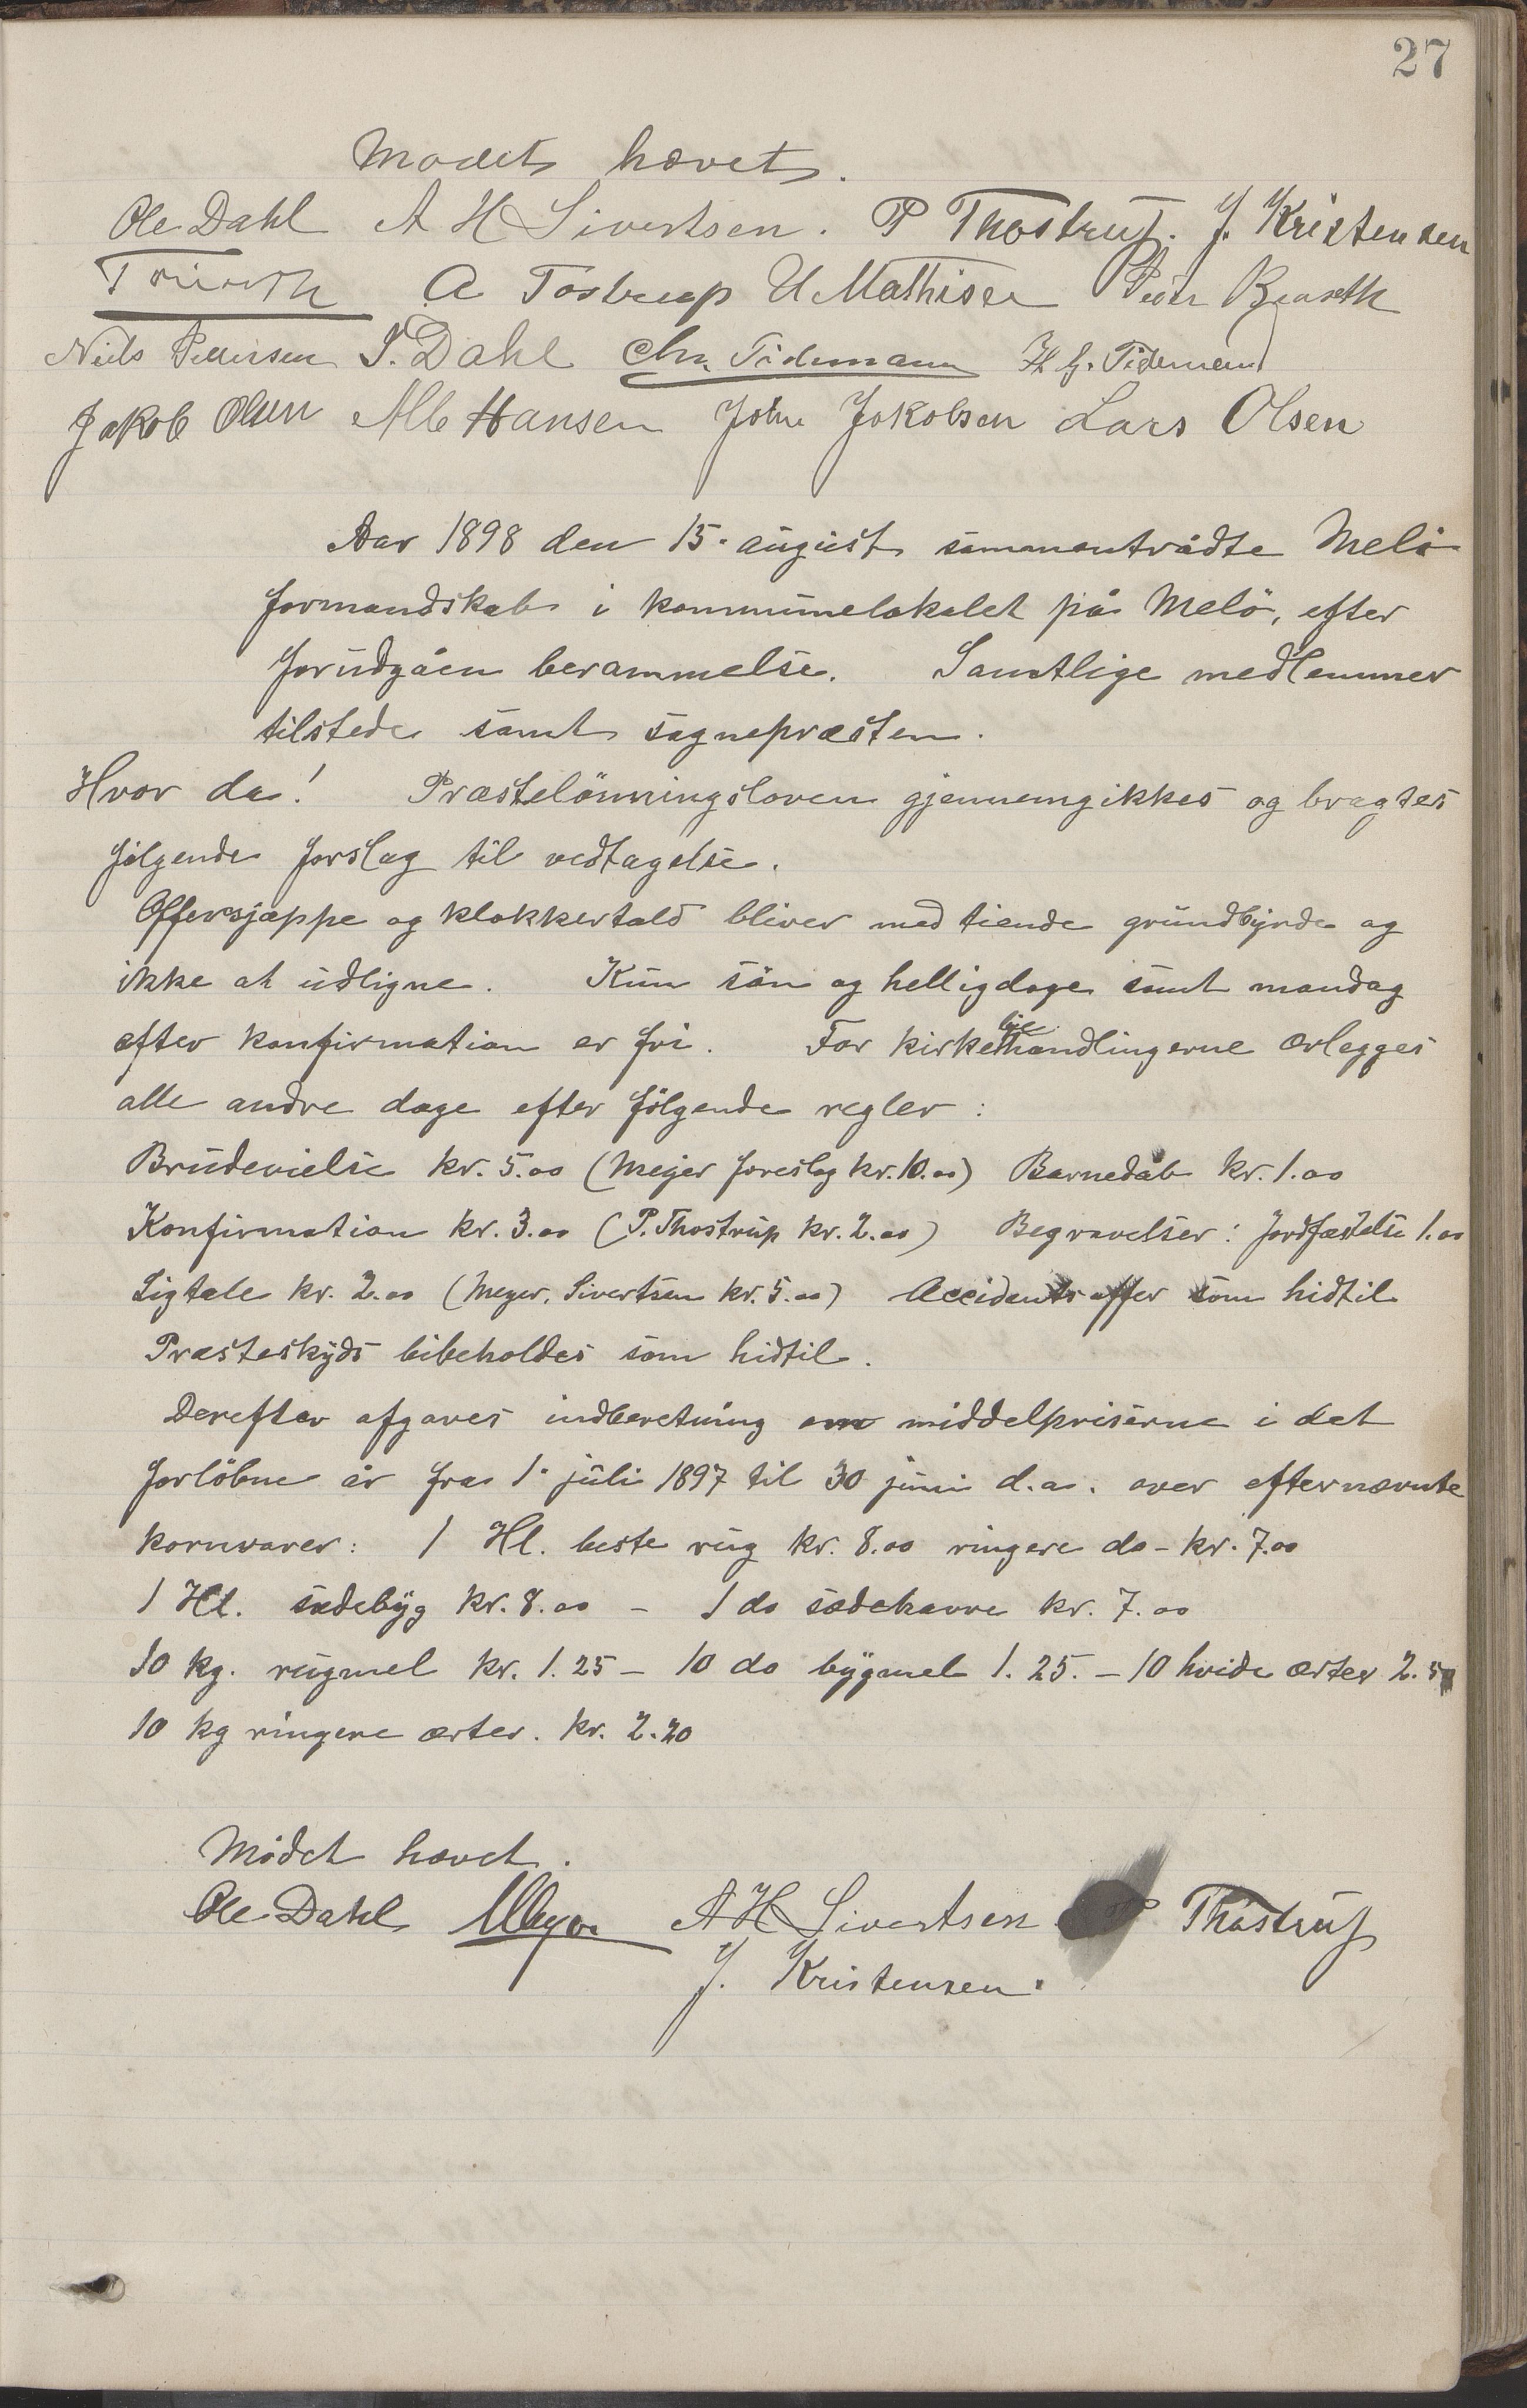 27
Mødet hævet.
Ole Dahl A H Sivertsen. P Thostrup. J. Kristensen
A Tostrup U Mathisen Peder
Niels Pettersen P. Dahl Chr. Tidemann H G. Tidemand
Jakob Olsen Alb Hansen John Jakobsen Lars Olsen
Aar 1898 den 15. august sammentrådte Melö
formandskab i kommunelokalet på Melö, efter
forudgåen berammelse. Samtlige medlemmer
tilstede samt sognepræsten.
Hvor da! Præstelönningsloven gjennemgikkes og bragtes
fölgende forslag til vedtagelse.
Offersjæppe og klokkertold bliver med tiende grundbyrde og
ikke at udligne. Kun sön og helligdage samt mandag
efter konfirmation er fri. For kirkelige handlingerne erlægges
alle andre dage efter fölgende regler:
Brudevielse kr. 5.00 (Meyer foreslog kr. 10.00) Barnedåb kr. 1.00
Konfirmation kr. 3.00 (P. Thostrup kr. 2.00) Begravelser: Jordfæstelse 1.00
Ligtale kr. 2.00 (Meyer, Sivertsen kr. 5.00) Accidentsoffer som hidtil
Præsteskyds bibeholdes som hidtil.
Derefter afgaves indberetning om middelpriserne i det
forlöbne år fra 1. juli 1897 til 30 juni d.a. over efternævnte
kornvarer: 1 Hl. beste rug kr. 8.00 ringere do - kr. 7.00
1 Hl. sædebyg kr. 8.00 - 1 do sædehavre kr. 7.00
10 kg. rugmel kr. 1.25 - 10 do bygmel 1.25. - 10 hvide ærter 2.50
10 kg ringere ærter. kr. 2.20
Mödet hævet.
Ole Dahl Meyer A H Sivertsen P Thostrup
J. Kristensen.